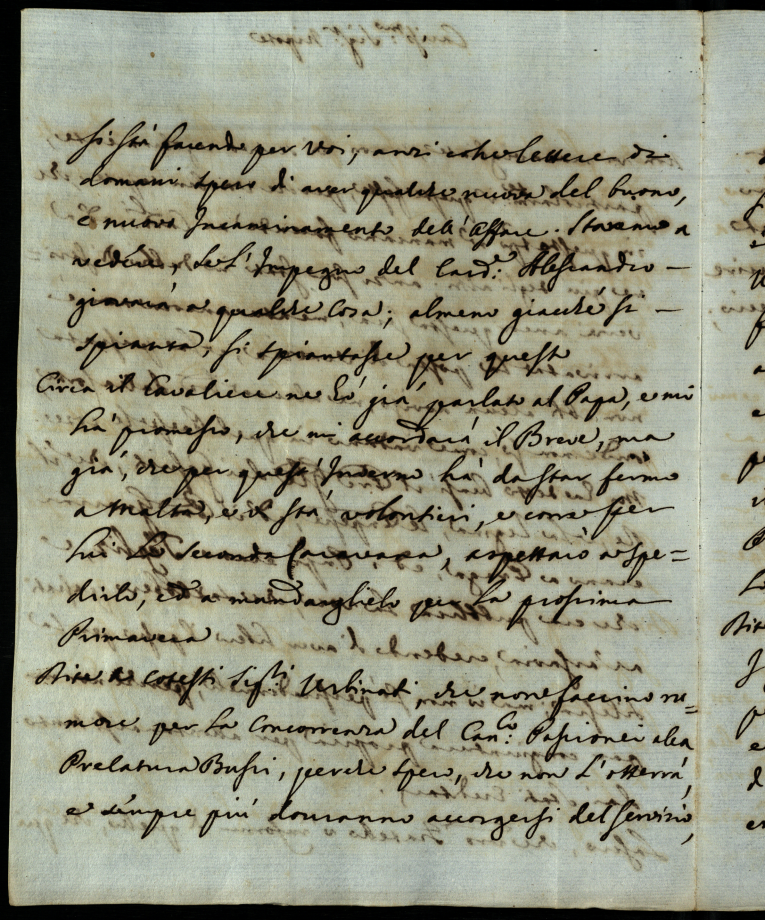 si stà facendo per Voi, anzi colle lettere di
domani spero di aver qualche nuova del buono,
e nuovo Incaminamento dell'Affare. Staremo a
vedere, se l'Impegno del Card.e Alessandro —
gioverà a qualche cosa; almeno giacché si —
spianta, si spiantasse per questo
Circa il Cavaliere ne hò già parlato al Papa, e mi
hà promesso, che mi accordarà il Breve, ma
già, che per quest'Inverno hà da star fermo
a Malta, e vi stà volontieri, e corre per
lui la seconda Caravana, aspettarò a spe=
dirlo, ed a mandarglielo per la prossima
Primavera
Dite a cotesti Sig.ri Urbinati, che non faccino ru=
more per la Concorrenza del Can.co Passionei alla
Prelatura Bussi, perche spero, che non l'otterrà,
e sempre più dovranno accorgersi del servizio,